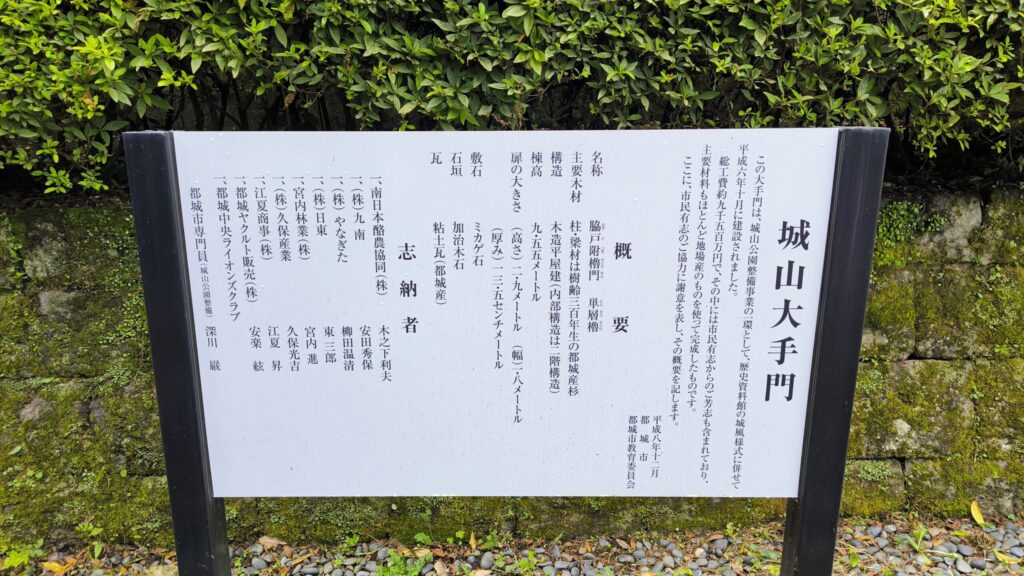 城山大手門
この大手門は、城山公園整備事業の一環として、歴史資料館の城風様式に併せて
平成六年十月に建設されました。
総工費約九千五百万円で、その中には市民有志からのご芳志も含まれており、
主要材料もほとんど地場産のものを使って完成したものです。
ここに、市民有志のご協力に謝意を表し、その概要を記します。
平成八年十二月
都城市
都城市教育委員会
概要
名称 脇戸附櫓門 単層櫓
主要木材 柱・梁材は樹齢三百年生の都城産杉
構造 木造平屋建(内部構造は二階構造)
棟高 九・五五メートル
扉の大きさ (高さ)二・九メートル (幅)二・八メートル
(厚み)一三・五センチメートル
敷石 ミカゲ石
石垣 加治木石
瓦 粘土瓦(都城産)
志納者
一、南日本酪農協同(株) 木之下利夫
一、(株)九南 安田秀保
一、(株)やなぎた 柳田温清
一、(株)日東 東三郎
一、宮内林業(株) 宮内進
一、(株)久保産業 久保光吉
一、江夏商事(株) 江夏昇
一、都城ヤクルト販売(株) 安楽紘
一、都城中央ライオンズクラブ
都城市専門員(城山公園整備) 深川巌